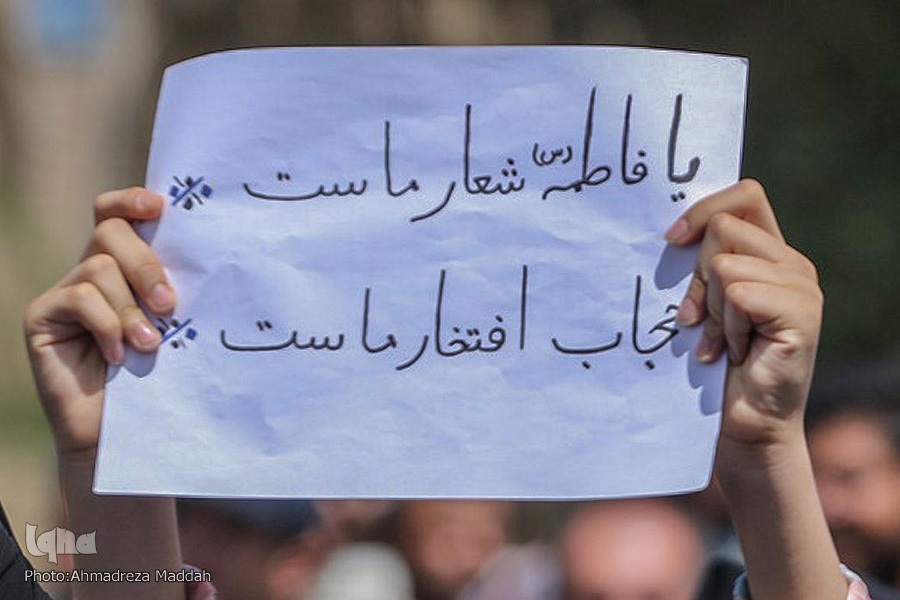 یا فاطمه (س) شعار ماست
حجاب افتخار ماست
iqna
Photo:Ahmadreza Maddah